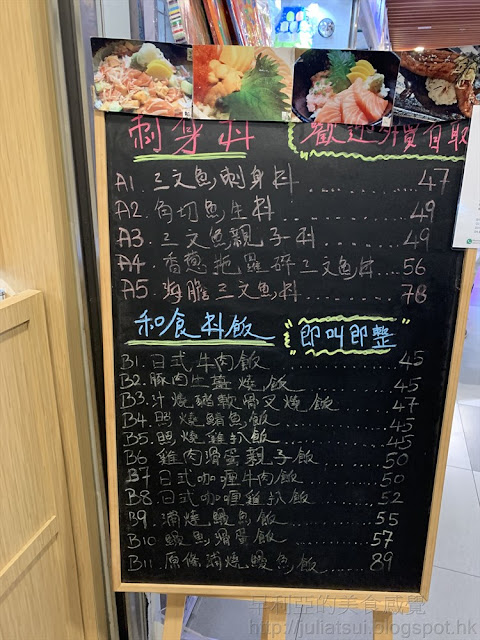 刺身丼
歡迎外賣自取
A1. 三文魚刺身丼 47
A2. 角切魚生丼 49
A3. 三文魚親子丼 49
A4. 香蔥拖羅碎三文魚丼 56
A5. 海膽三文魚丼 78
和食丼飯
"即叫即整"
B1. 日式牛肉飯 45
B2. 豚肉生薑燒飯 45
B3. 汁燒豬軟骨叉燒飯 47
B4. 照燒鯖魚飯 45
B5. 照燒雞扒飯 45
B6 雞肉滑蛋親子飯 50
B7 日式咖喱牛肉飯 50
B8 日式咖喱雞扒飯 52
B9. 蒲燒鰻魚飯 55
B10 鰻魚滑蛋飯 57
B11. 原條蒲燒鰻魚飯 89
早利亞的美食感覺
http://juliatsui.blogspot.hk